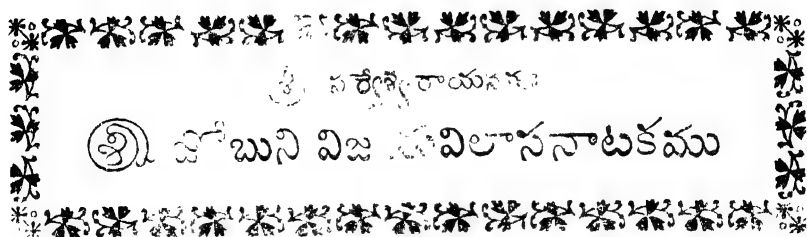 శ్రీ సర్వేశ్వరాయనమః
శ్రీ జోబుని విజయవిలాసనాటకము